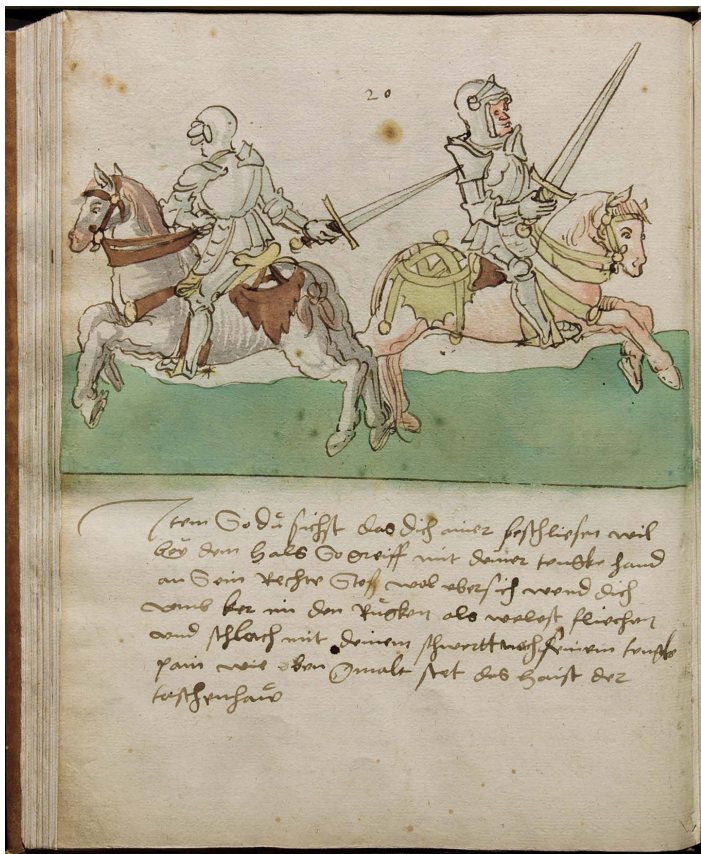 20
Item So dü sichst das dich ainer beschliesen wil
beÿ dem hals So greiff mit deiner tencke hand
an Sein Rechte Stos wol vbersich wend dich
vmb ker im den Rügken als welest fliechen
vnd schlach mit deinem schwertt nach seinem
pain wie oben gmalt stet das haist der
taschenhaw